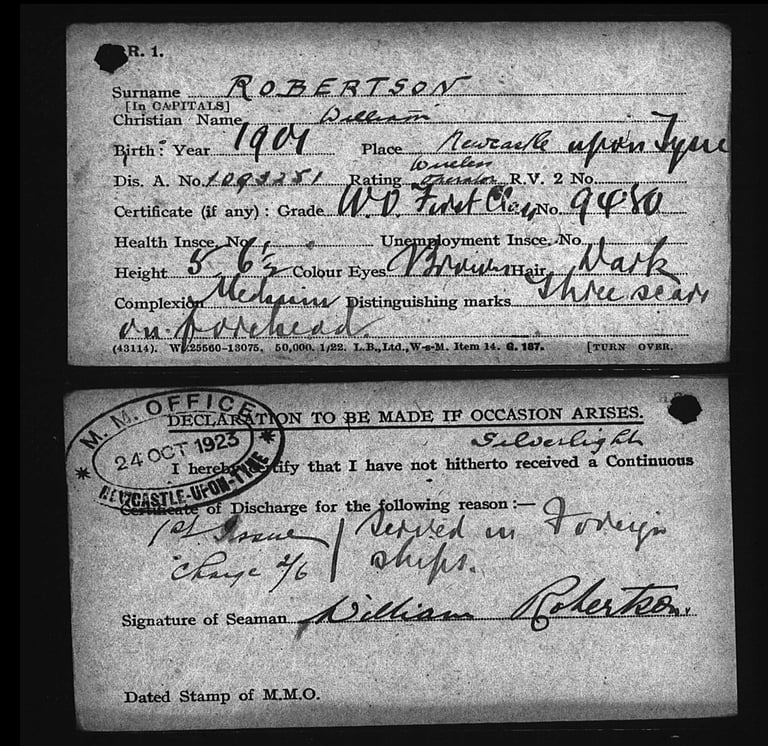 R. 1.
Surname ROBERTSON
[In CAPITALS]
Christian Name William
Birth: Year 1901 Place Newcastle upon Tyne
Wireless
Dis. A. No. Rating Operator R.V. 2 No.
Certificate (if any): Grade W.O. First Class No. 9480
Health Insce. No. Unemployment Insce. No.
Height 5 6½ Colour Eyes Brown Hair Dark
Complexion Medium Distinguishing marks Three scars
on forehead.
(43114). Wt.25560-13075. 50,000. 1/22. L.B., Ltd., W-s-M. Item 14. G. 187. [TURN OVER.
M. M. OFFICE
24 OCT 1923
NEWCASTLE-UPON-TYNE
DECLARATION TO BE MADE IF OCCASION ARISES.
Silverlight
I hereby certify that I have not hitherto received a Continuous
Certificate of Discharge for the following reason:—
1st Issue served in Foreign
Charge 2/6 ships.
Signature of Seaman William Robertson.
Dated Stamp of M.M.O.